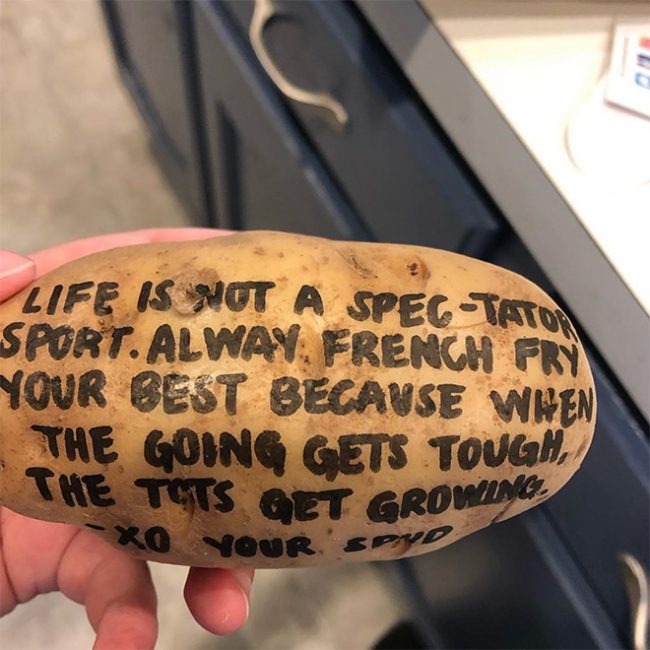 LIFE IS NOT A SPEC-TATOR
SPORT. ALWAY FRENCH FRY
YOUR BEST BECAUSE WHEN
THE GOING GETS TOUGH,
THE TOTS GET GROWING.
-XO YOUR SPUD